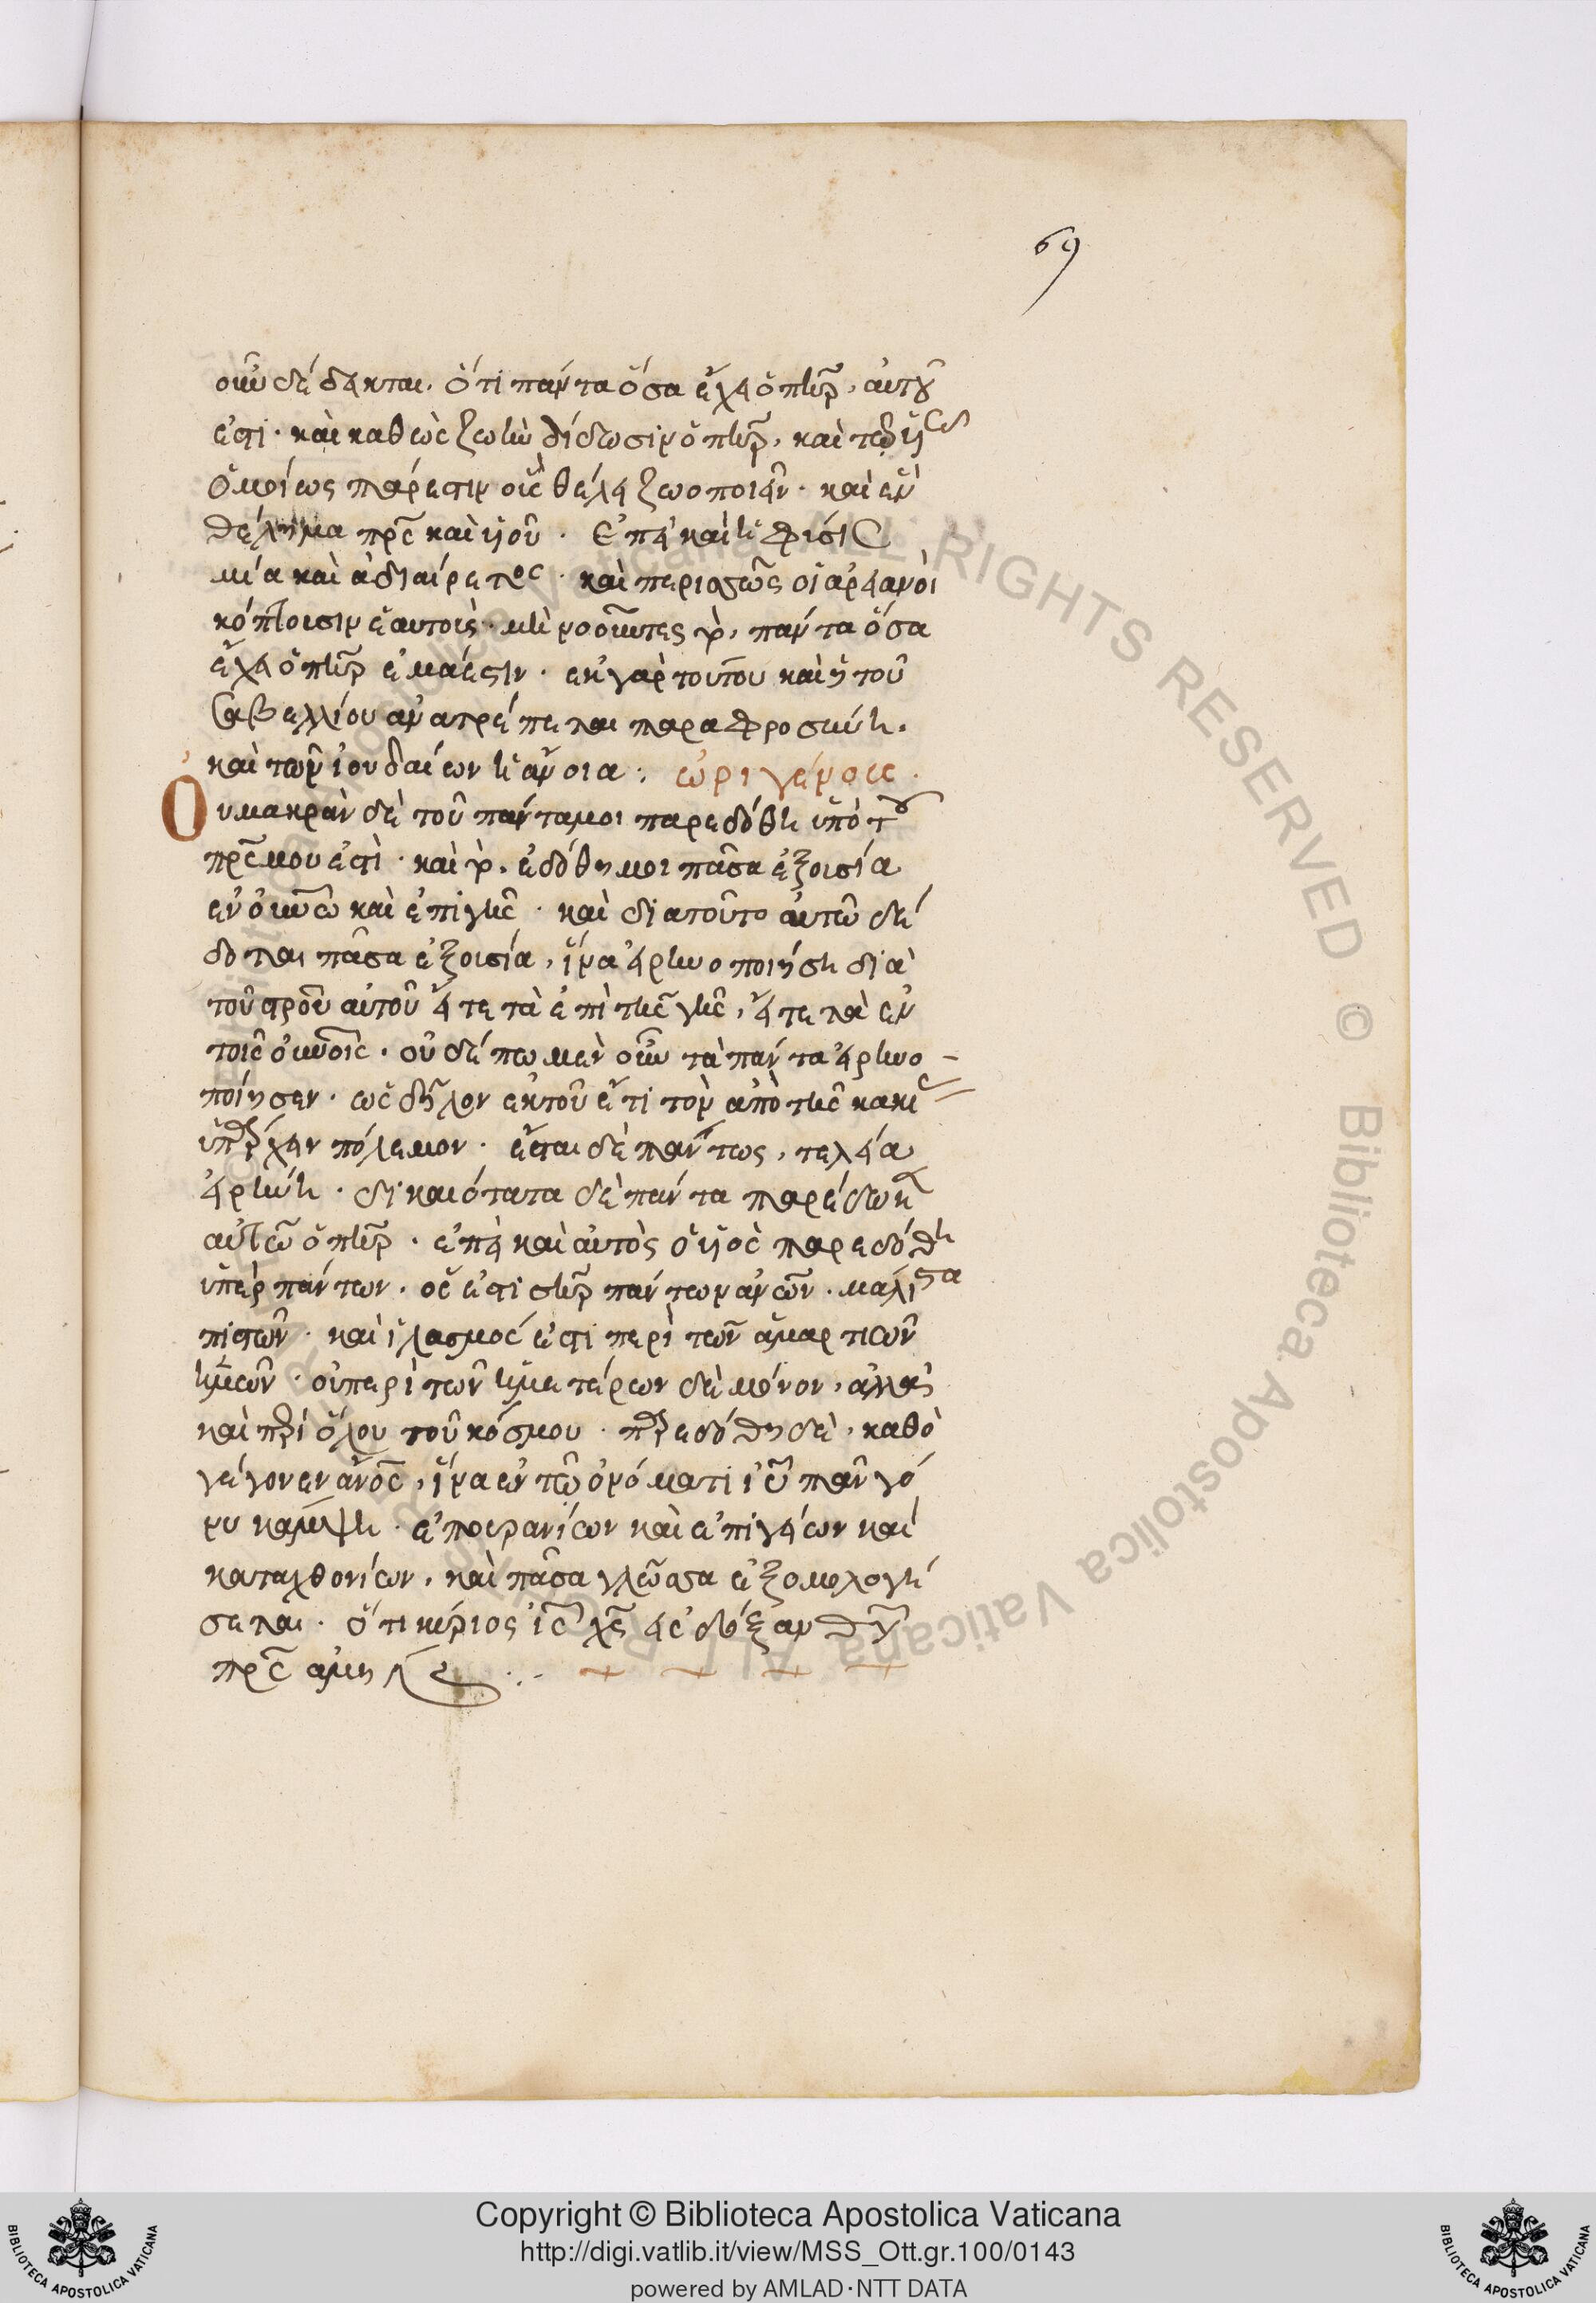 69
οὖν δέδεικται. ὅτι πάντα ὅσα ἔχει ὁ πὴρ, αὐτοῦ
ἐστι · καὶ καθὼς ζωὴν δίδωσιν ὁ πὴρ, καὶ τῷ υἱῷ
ὁμοίως πάρεστιν οἷς θέλει ζωοποιεῖν · καὶ ἓν
θέλημα πρς καὶ υἱοῦ · Ἐπεὶ καὶ ἡ φύσις
μία καὶ ἀδιαίρετος · καὶ περισσῶς οἱ ἀρειανοὶ
κόπτουσιν ἑαυτοὺς · μὴ νοοῦντες τὸ, πάντα ὅσα
ἔχει ὁ πὴρ ἐμά ἐστιν · ἐκ γὰρ τούτου καὶ ἡ τοῦ
Σαβελλίου ἀνατρέπεται παραφροσύνη.
καὶ τῶν ἰουδαίων ἡ ἄνοια : ὠριγένους ·
Οὐ μακρὰν δὲ τοῦ πάντα μοι παρεδόθη ὑπὸ τοῦ
πρς μου ἐστὶ · καὶ τὸ. ἐδόθη μοι πᾶσα ἐξουσία
ἐν οὐνῶ καὶ ἐπὶ γῆς · καὶ διατοῦτο αὐτῶ δέ
δοται πᾶσα ἐξουσία, ἵνα εἰρηνοποιήση διὰ
τοῦ σροῦ αὐτοῦ εἴτε τὰ ἐπὶ τῆς γῆς, εἴτε τὰ ἐν
τοῖς οὐνοῖς · οὐδέπω μὲν οὖν τὰ πάντα εἰρηνο-
ποίησεν · ὡς δῆλον ἐκ τοῦ ἔτι τὸν ἀπὸ τῆς κακίας
ὑπάρχειν πόλεμον · ἔσται δὲ πάντως, τελεία
εἰρήνη · δικαιότατα δὲ πάντα παρέδωκεν
αὐτῶ ὁ πὴρ · ἐπεὶ καὶ αὐτὸς ὁ υἱὸς παρεδόθη
ὑπὲρ πάντων · ὅς ἐστι σὴρ πάντων ἀνων · μάλιστα
πιστῶν · καὶ ἱλασμός ἐστι περὶ τῶν ἁμαρτιῶν
ἡμῶν · οὐ περὶ τῶν ἡμετέρων δὲ μόνον, ἀλλὰ
καὶ περὶ ὅλου τοῦ κόσμου · παρεδόθη δὲ, καθὸ
γέγονεν ανος, ἵνα ἐν τῶ ὀνόματι ιυ πᾶν γό
νυ κάμψη · ἐπουρανίων καὶ ἐπιγείων καὶ
καταχθονίων, καὶ πᾶσα γλῶσσα ἐξομολογή
σεται · ὅτι κύριος ις χς εἰς δόξαν θυ
πρς ἀμήν :-